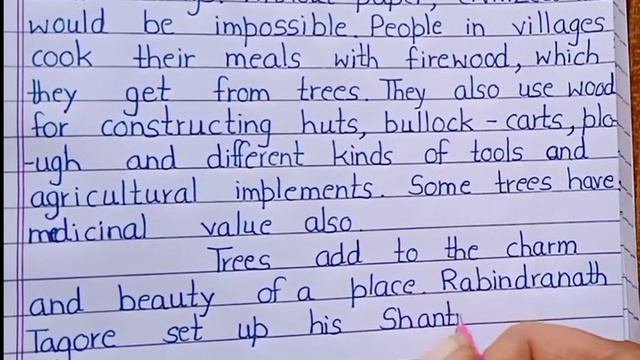 would be impossible. People in villages
cook their meals with firewood, which
they get from trees. They also use wood
for constructing huts, bullock-carts, plo-
-ugh and different kinds of tools and
agricultural implements. Some trees have
medicinal value also.
Trees add to the charm
and beauty of a place. Rabindranath
Tagore set up his Shant